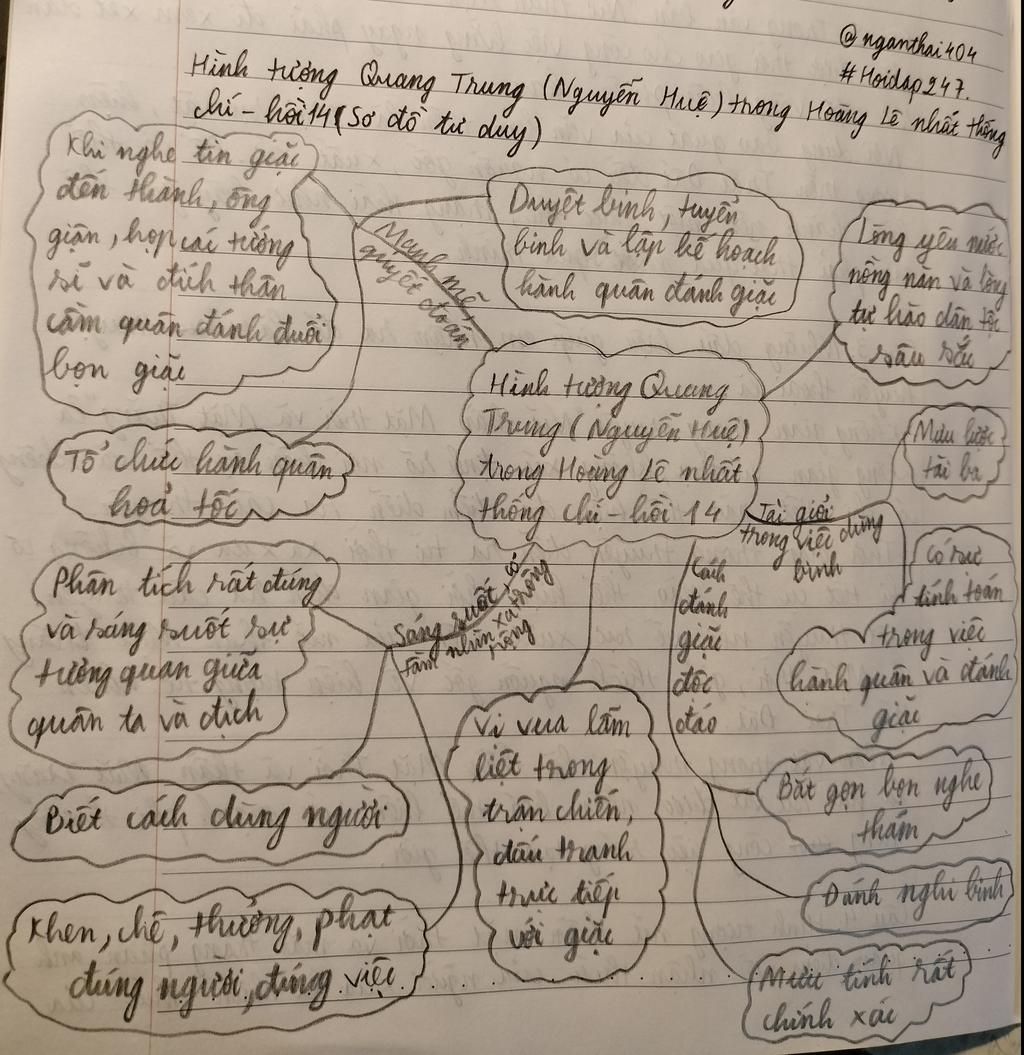 @nganthai404
#Hoidap247.
Hình tượng Quang Trung (Nguyễn Huệ) trong Hoàng Lê nhất thống
chí - hồi 14 (Sơ đồ tư duy)
Khi nghe tin giặc
đến thành, ông
giận, họp các tướng
sĩ và đích thân
cầm quân đánh đuổi
bọn giặc
Mạnh mẽ,
quyết đoán
Duyệt binh, tuyển
binh và lập kế hoạch
hành quân đánh giặc
Lòng yêu nước
nồng nàn và lòng
tự hào dân tộc
sâu sắc
Tổ chức hành quân
hoả tốc
Hình tượng Quang
Trung (Nguyễn Huệ)
trong Hoàng Lê nhất
thống chí - hồi 14
Mưu lược
tài ba
Tài giỏi
trong việc dùng
binh
Có sự
tính toán
trong việc
hành quân và đánh
giặc
Phân tích rất đúng
và sáng suốt sự
tương quan giữa
quân ta và địch
Sáng suốt, có
tầm nhìn xa trông
rộng
Cách
đánh
giặc
độc
đáo
Vị vua lẫm
liệt trong
trận chiến,
đấu tranh
trực tiếp
với giặc
Bắt gọn bọn nghe
thám
Biết cách dùng người
Đánh nghi binh
Khen, chê, thưởng, phạt
đúng người, đúng việc
Mưu tính rất
chính xác